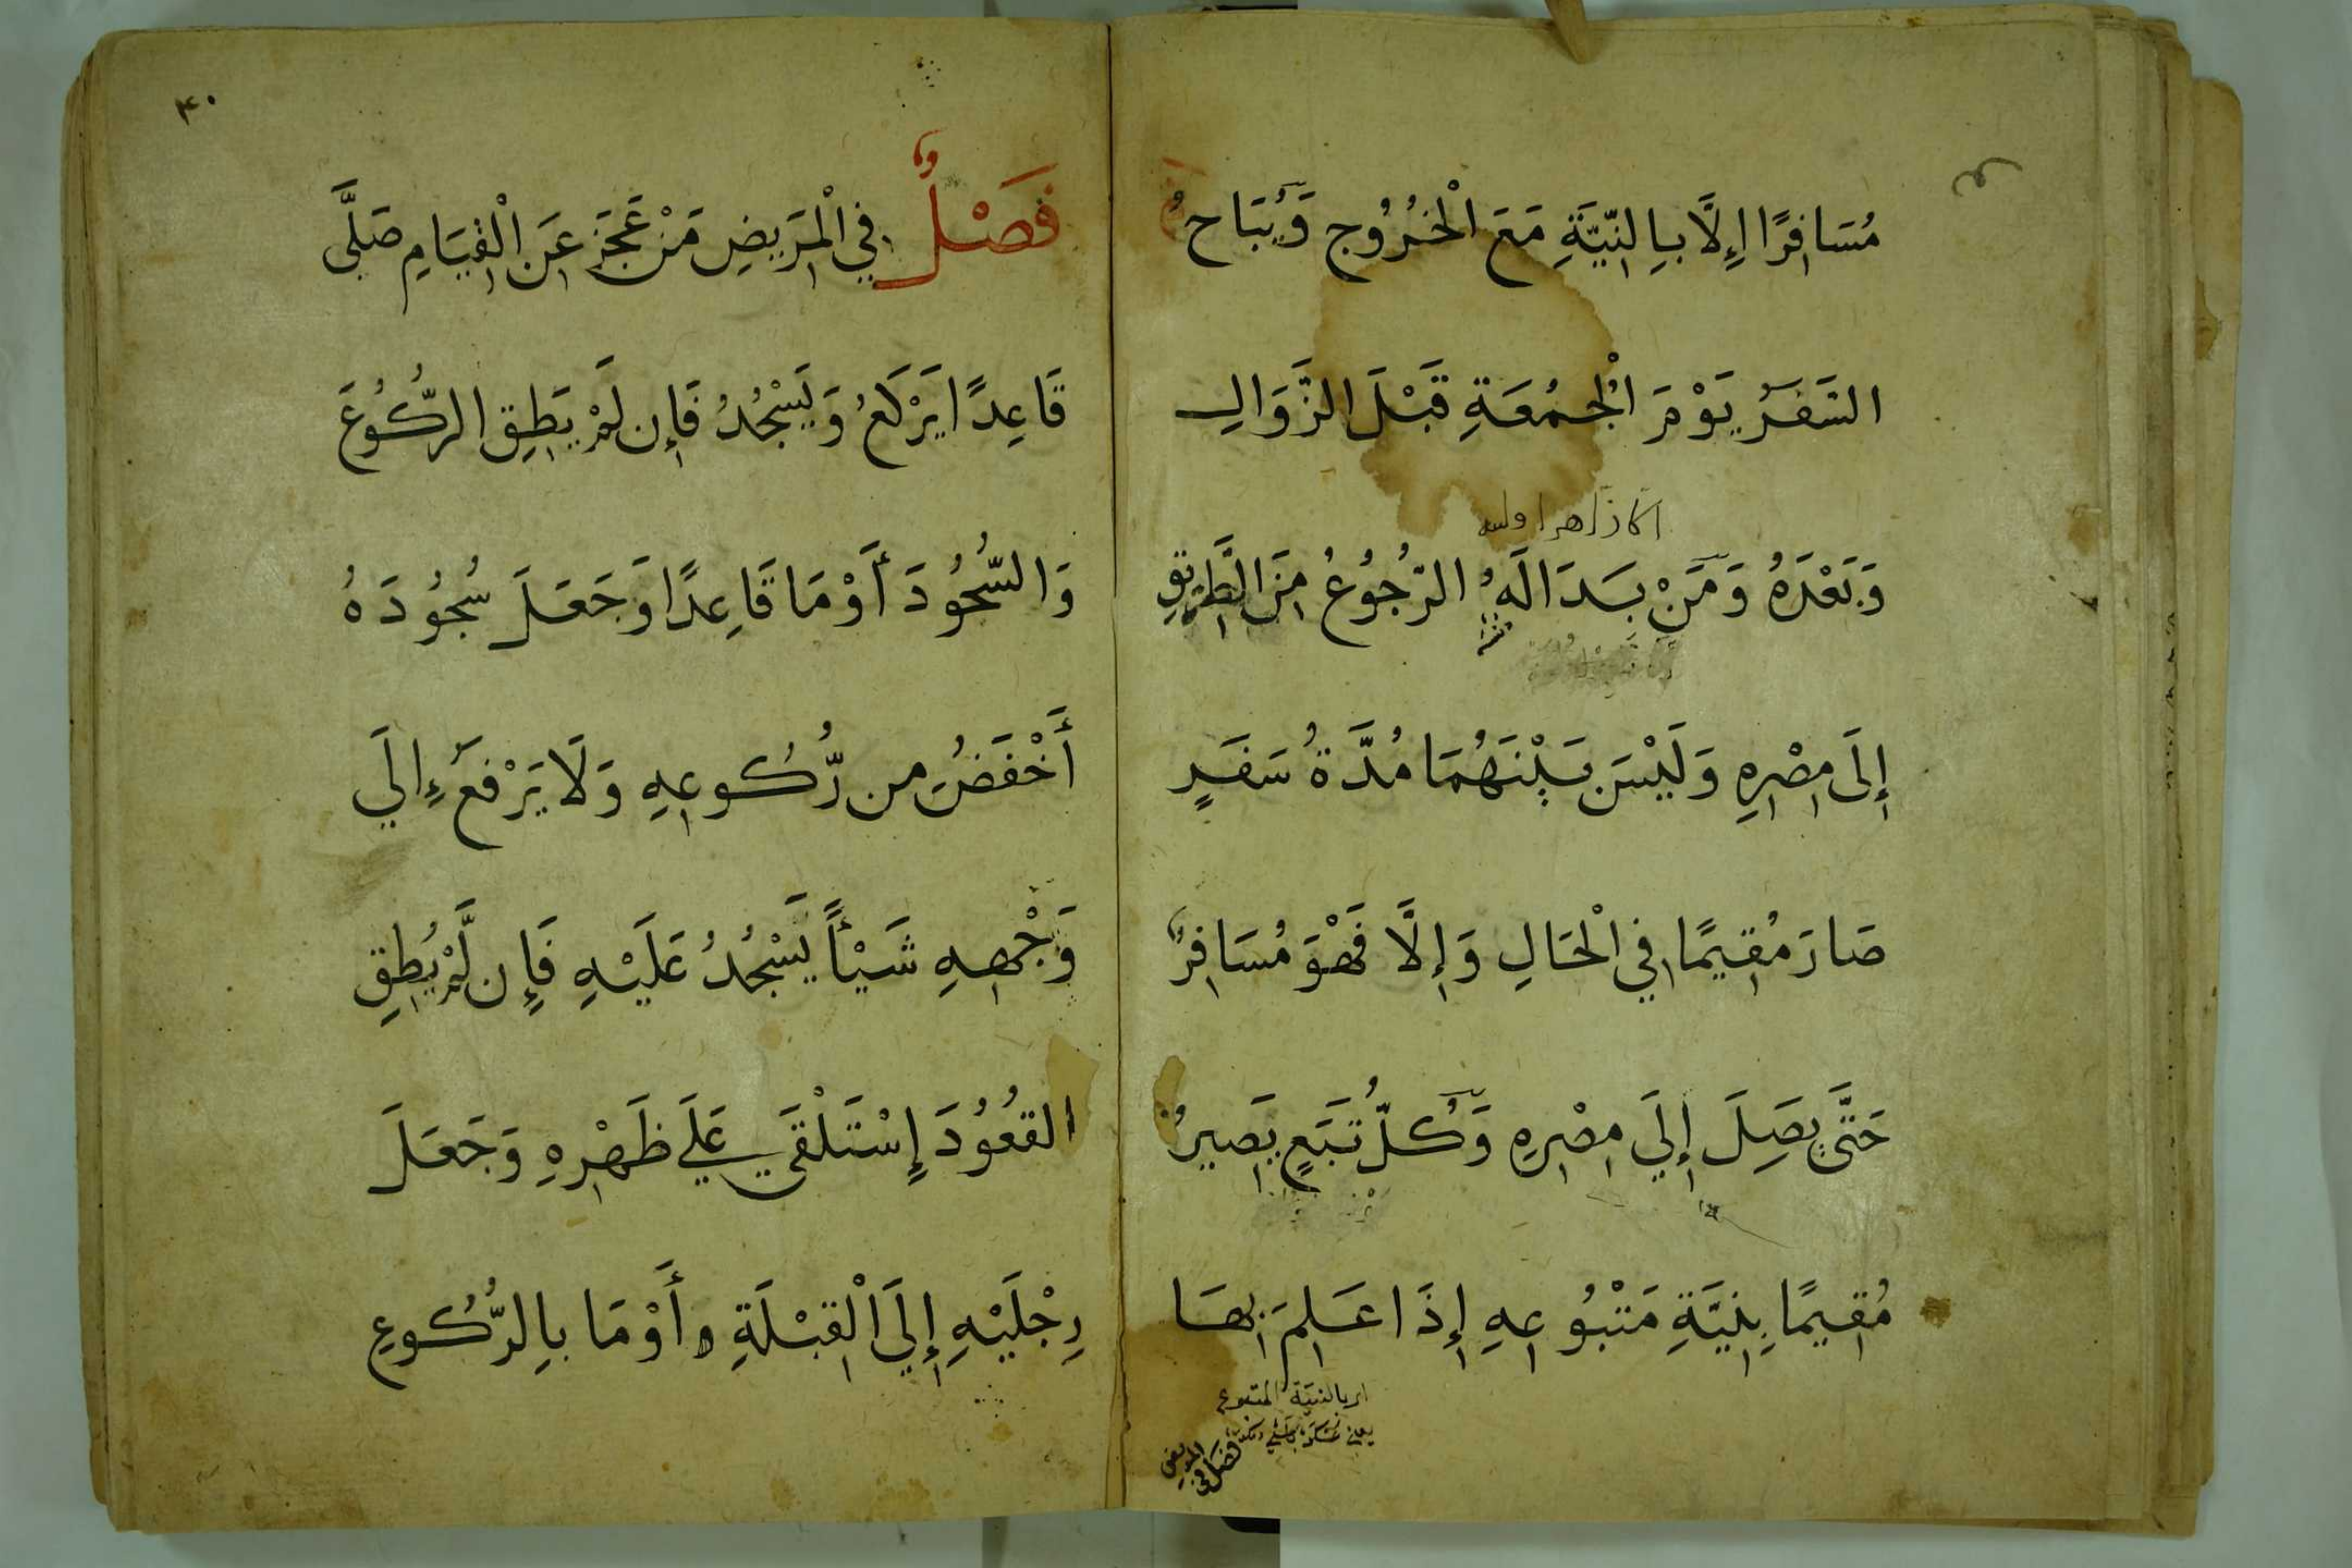 مُسَافِرًا إِلَّا بِالنِّيَّةِ مَعَ الْخُرُوجِ وَيُبَاحُ
السَّفَرُ يَوْمَ الْجُمُعَةِ قَبْلَ الزَّوَالِ
وَبَعْدَهُ وَمَنْ بَدَا لَهُ الرُّجُوعُ مِنَ الطَّرِيقِ
إِلَى مِصْرِهِ وَلَيْسَ بَيْنَهُمَا مُدَّةُ سَفَرٍ
صَارَ مُقِيمًا فِي الْحَالِ وَإِلَّا فَهْوَ مُسَافِرٌ
حَتَّى يَصِلَ إِلَي مِصْرِهِ وَكُلُّ تَبَعٍ يَصِيرُ
مُقِيمًا بِنِيَّةِ مَتْبُوعِهِ إِذَا عَلِمَ بِهَا
فصل في المريض
٤٠
فَصْلٌ فِي الْمَرِيضِ مَنْ عَجَزَ عَنِ الْقِيَامِ صَلَّى
قَاعِدًا يَرْكَعُ وَيَسْجُدُ فَإِن لَمْ يَطِقِ الرُّكُوعَ
وَالسُّجُودَ أَوْمَا قَاعِدًا وَجَعَلَ سُجُودَهُ
أَخْفَضَ مِن رُّكُوعِهِ وَلَا يَرْفَعُ إِلَي
وَجْهِهِ شَيْأً يَسْجُدُ عَلَيْهِ فَإِن لَّمْ يُطِقِ
القُعُودَ إِسْتَلْقَي عَلَي ظَهْرِهِ وَجَعَلَ
رِجْلَيْهِ إِلَي الْقِبْلَةِ وأَوْمَا بِالرُّكُوعِ